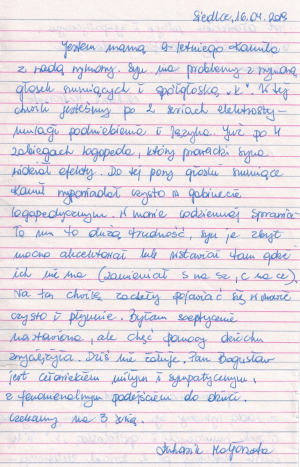 Siedlce, 16.04.2018
Jestem mamą 9-letniego Kamila
z wadą wymowy. Syn ma problemy z wymową
głosek szumiących i spółgłoską „k". W tej
chwili jesteśmy po 2 seriach elektrosty-
mulacji podniebienia i języka. Już po 4
zabiegach logopeda, który prowadzi syna
widział efekty. Do tej pory głoski szumiące
Kamil wypowiadał czysto w gabinecie
logopedycznym. W mowie codziennej sprawia
To mu to dużą trudność, syn je zbyt
mocno akcentował lub wstawiał tam gdzie
ich nie ma (zamieniał s na sz, c na cz).
Na tą chwilę zaczęły pojawiać się w mowie
czysto i płynnie. Byłam sceptycznie
nastawiona, ale chęć pomocy dziecku
zwyciężyła. Dziś nie żałuję. Pan Bogusław
jest człowiekiem miłym i sympatycznym,
z fenomenalnym podejściem do dzieci.
Czekamy na 3 serię.
Małgorzata